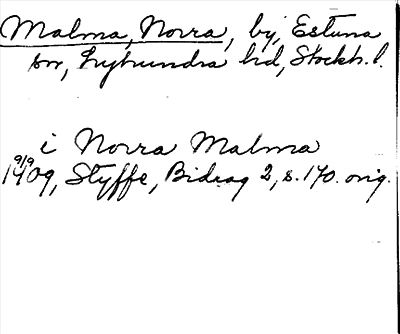 Malma, Norra, by, Estuna
sn, Lyhundra hd, Stockh. l.
i Norra Malma
9/9
1409, Styffe, Bidrag 2, s. 170. orig.